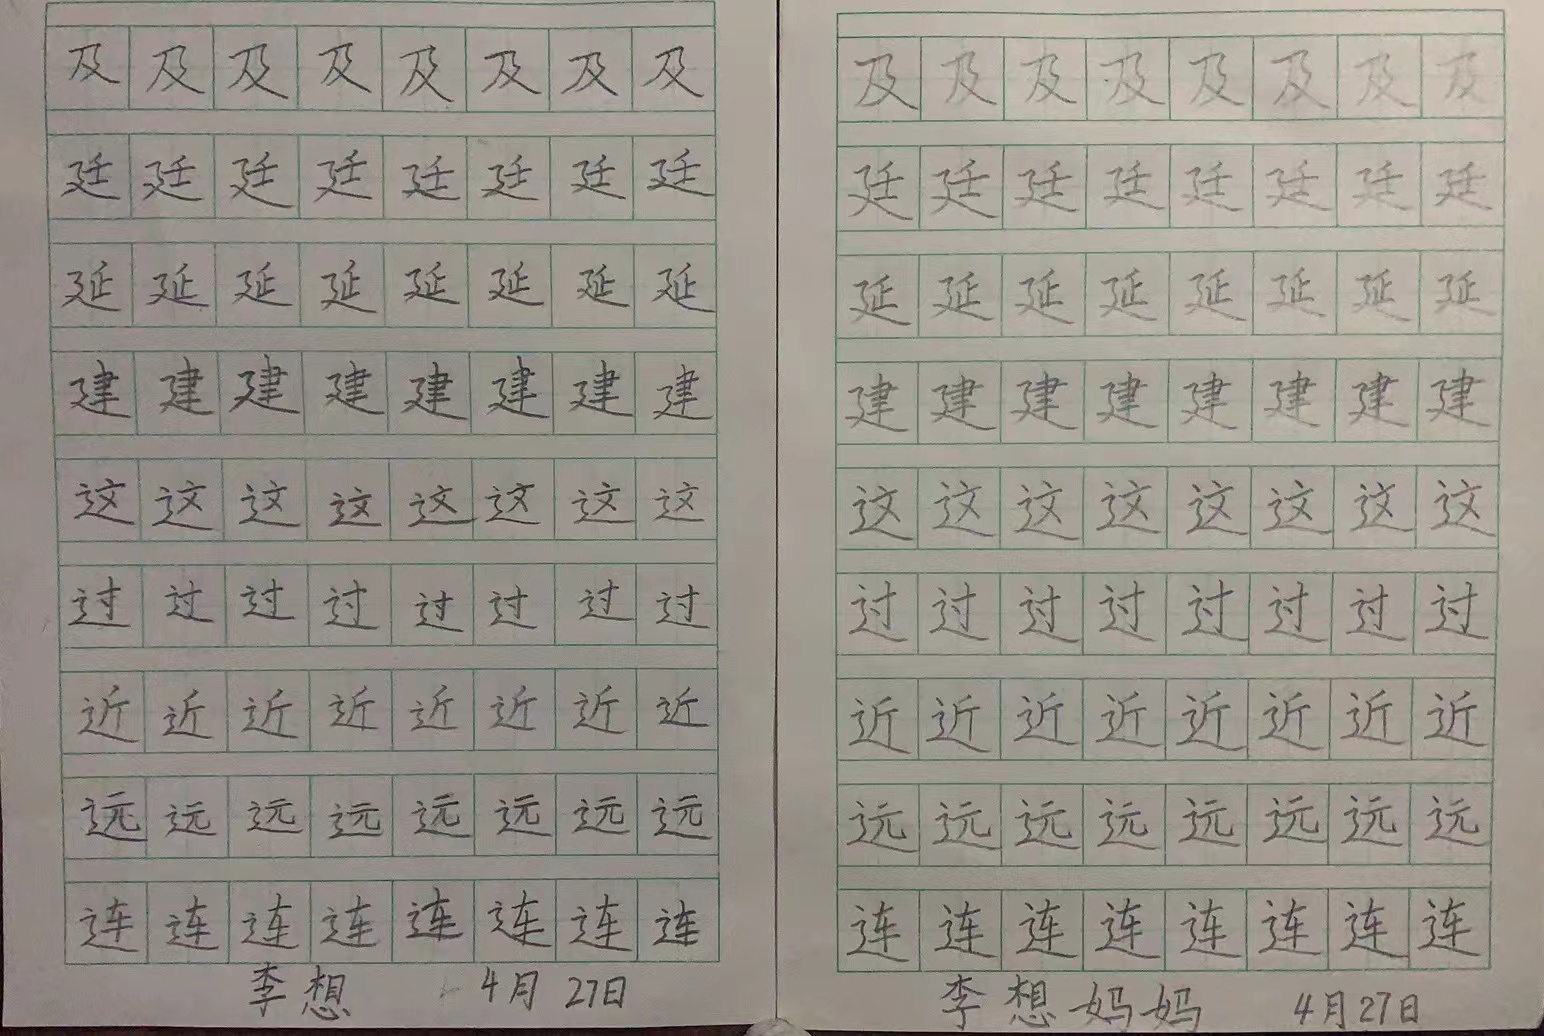 及及及及及及及及
廷廷廷廷廷廷廷廷
延延延延延延延延
建建建建建建建建
这这这这这这这这
过过过过过过过过
近近近近近近近近
远远远远远远远远
连连连连连连连连
李想 4月27日
及及及及及及及及
廷廷廷廷廷廷廷廷
延延延延延延延延
建建建建建建建建
这这这这这这这这
过过过过过过过过
近近近近近近近近
远远远远远远远远
连连连连连连连连
李想妈妈 4月27日